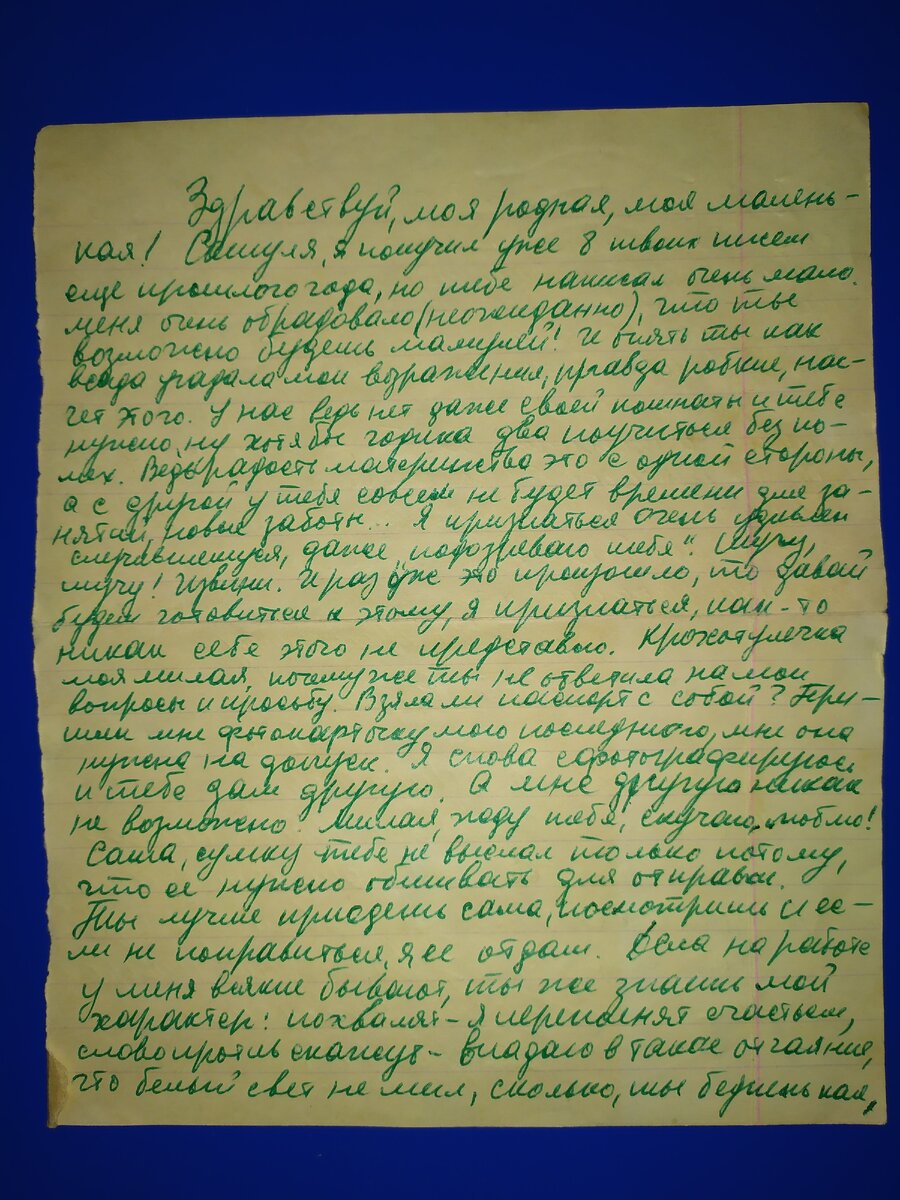 Здравствуй, моя родная, моя малень-
кая! Сашуля, я получил уже 8 твоих писем
еще прошлого года, но тебе написал очень мало.
меня очень обрадовало (неожиданно), что ты
возможно будешь мамулей! И опять ты как
всегда угадала мои выражения, правда робкие, нас-
чет этого. У нас ведь нет даже своей комнаты и тебе
нужно, ну хотя бы годика два поучиться без по-
мех. Ведь радость материнства это с одной стороны,
а с другой у тебя совсем не будет времени для за-
нятий, новые заботы... Я признаться очень удивлен
случившимся, даже "подозреваю тебя". Шучу,
шучу! Извини. И раз уже это произошло, то давай
будем готовиться к этому, я признаться, как-то
никак себе этого не представлю. Крохотулечка
моя милая, почему же ты не ответила на мои
вопросы и просьбу. Взяла ли паспорт с собой? При-
шли мне фотокарточку мою последнюю, мне она
нужна на допуск. Я снова сфотографируюсь
и тебе дам другую. А мне другую никак
не возможно. Милая, жду тебя, скучаю, люблю!
Саша, сумку тебе не выслал только потому,
что ее нужно обшивать для отправки.
Ты лучше приедешь сама, посмотришь и ес-
ли не понравиться, я ее отдам. Дела на работе
у меня всякие бывают, ты же знаешь мой
характер: похвалят - я переполнят счастьем,
слово против скажут - впадаю в такое отчаяние,
что белый свет не мил, сколько, ты бедненькая,